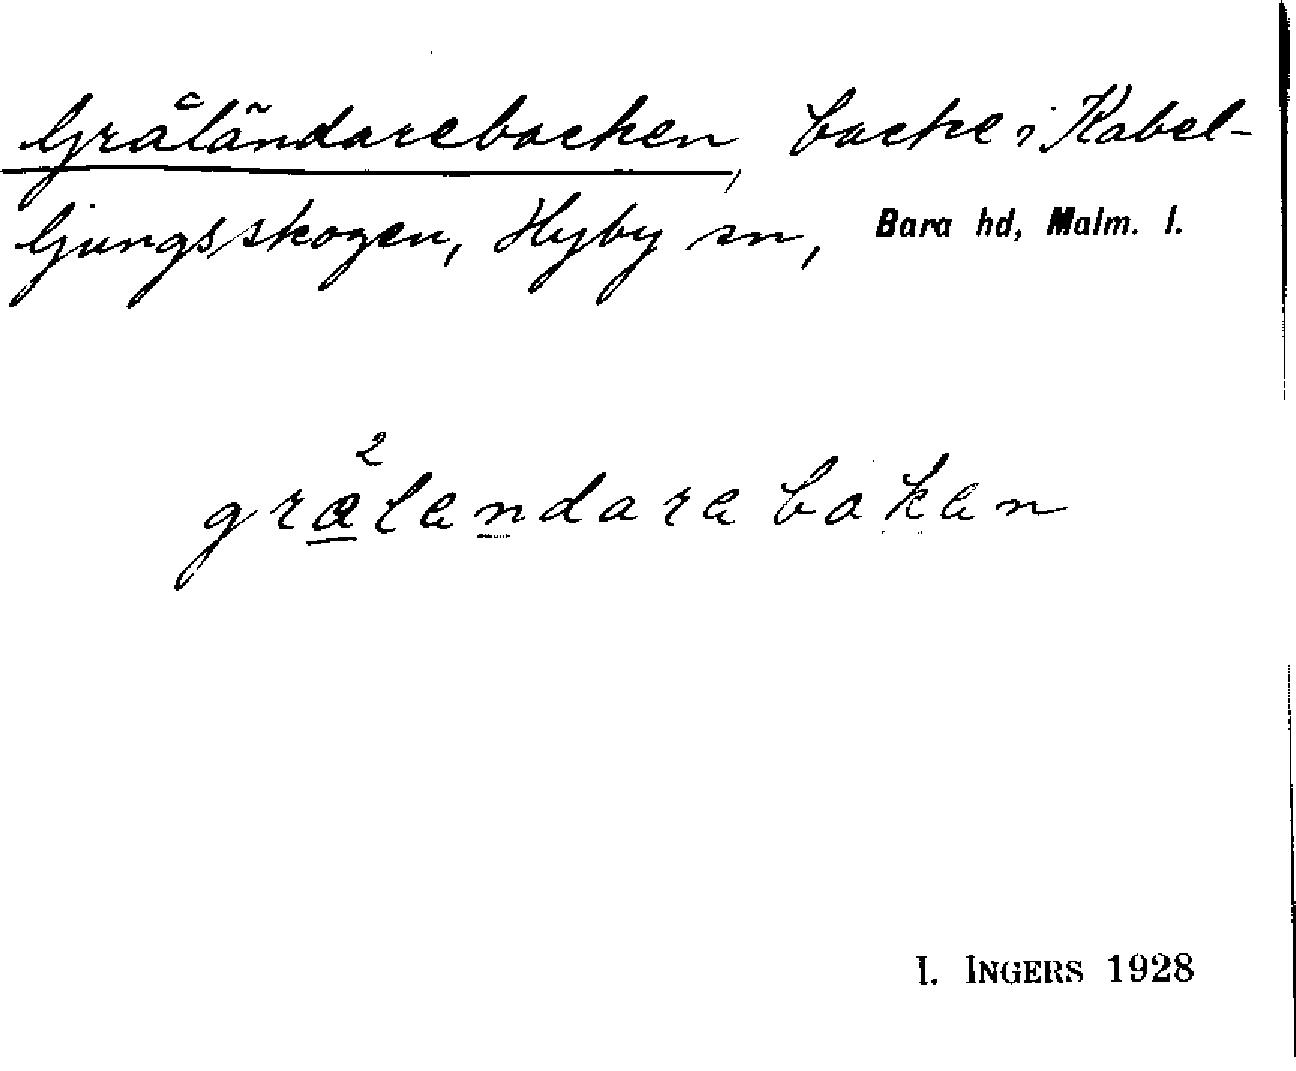 Gråländarebacken, backe i Kabel-
ljungsskogen, Hyby sn, Bara hd, Malm. l.
grålandarabakan
I. INGERS 1928